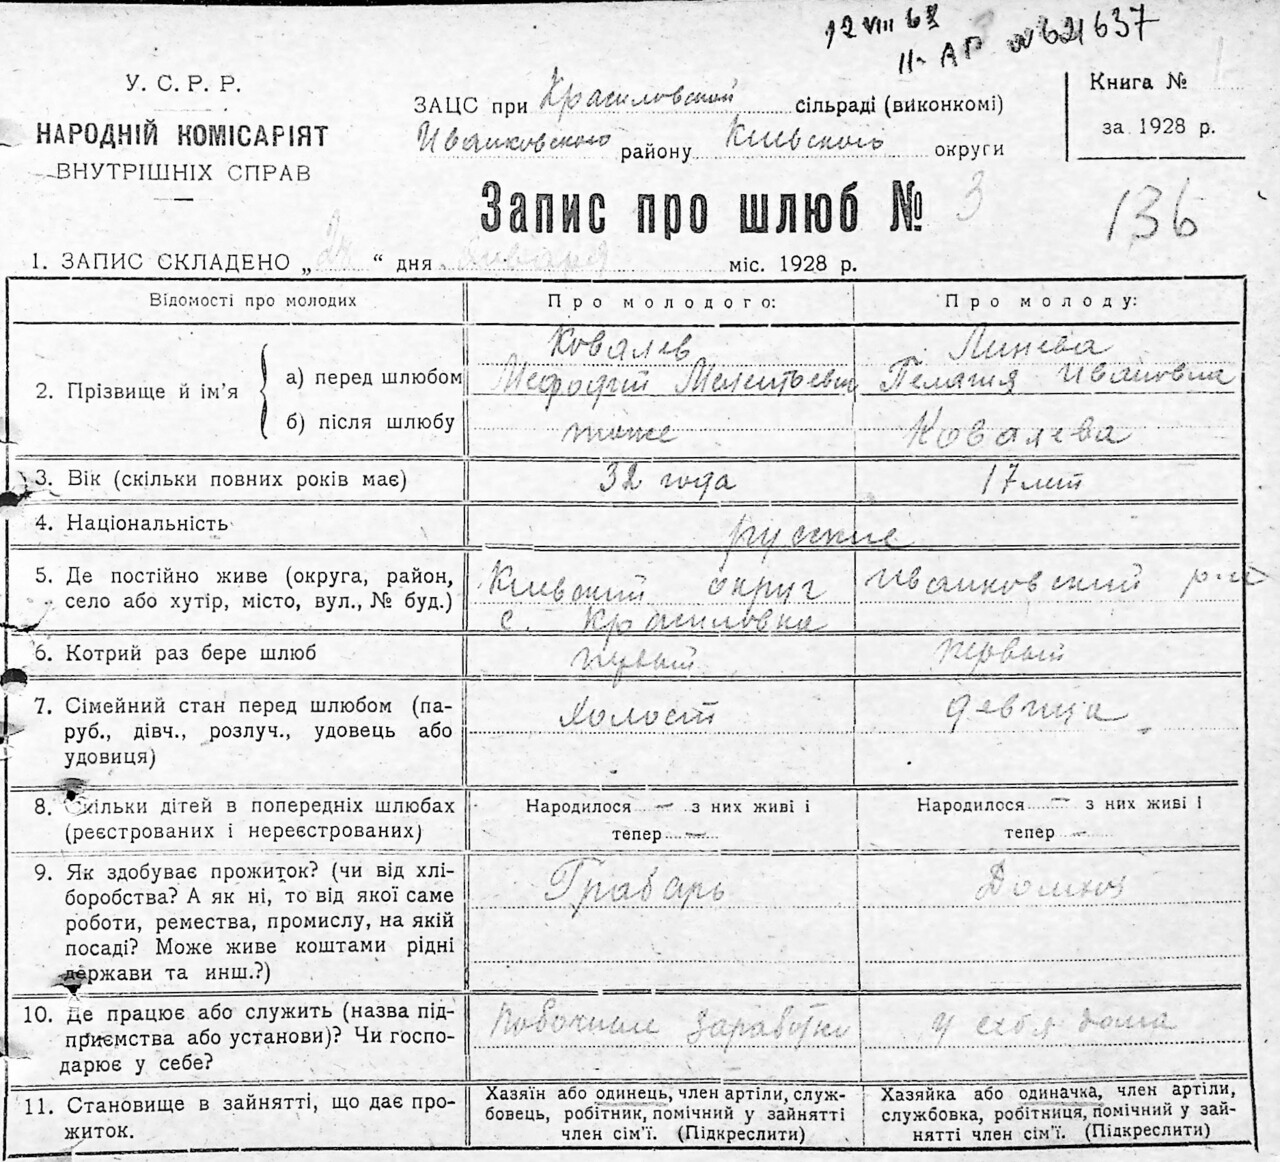 12 VIII 68
II-АП № 621637
У. С. Р. Р.
НАРОДНІЙ КОМІСАРІЯТ
ВНУТРІШНІХ СПРАВ
ЗАЦС при Красиловской сільраді (виконкомі)
Иванковского району Киевского округи
Книга №
за 1928 р.
Запис про шлюб № 3
136
1. ЗАПИС СКЛАДЕНО „24“ дня января міс. 1928 р.
Відомості про молодих
Про молодого:
Про молоду:
2. Прізвище й ім’я
а) перед шлюбом
Ковалев
Мефодий Мелентьевич
Линева
Пелагия Ивановна
б) після шлюбу
тоже
Ковалева
3. Вік (скільки повних років має)
32 года
17 лет
4. Національність
русские
5. Де постійно живе (округа, район,
село або хутір, місто, вул., № буд.)
Киевский округ Иванковский р-н
с. Красиловка
6. Котрий раз бере шлюб
первый
первый
7. Сімейний стан перед шлюбом (па-
руб., дівч., розлуч., удовець або
удовиця)
Холост
девица
8. Скільки дітей в попередніх шлюбах
(реєстрованих і нереєстрованих)
Народилося — з них живі і
тепер —
Народилося — з них живі і
тепер —
9. Як здобуває прожиток? (чи від хлі-
боробства? А як ні, то від якої саме
роботи, ремества, промислу, на якій
посаді? Може живе коштами рідні
держави та инш.?)
Грабарь
Домхоз
10. Де працює або служить (назва під-
приємства або установи)? Чи госпо-
дарює у себе?
Побочные заработки
у себя дома
11. Становище в зайнятті, що дає про-
житок.
Хазяїн або одинець, член артіли, служ-
бовець, робітник, помічний у зайнятті
член сім’ї. (Підкреслити)
Хазяйка або одиначка, член артіли,
службовка, робітниця, помічний у зай-
нятті член сім’ї. (Підкреслити)